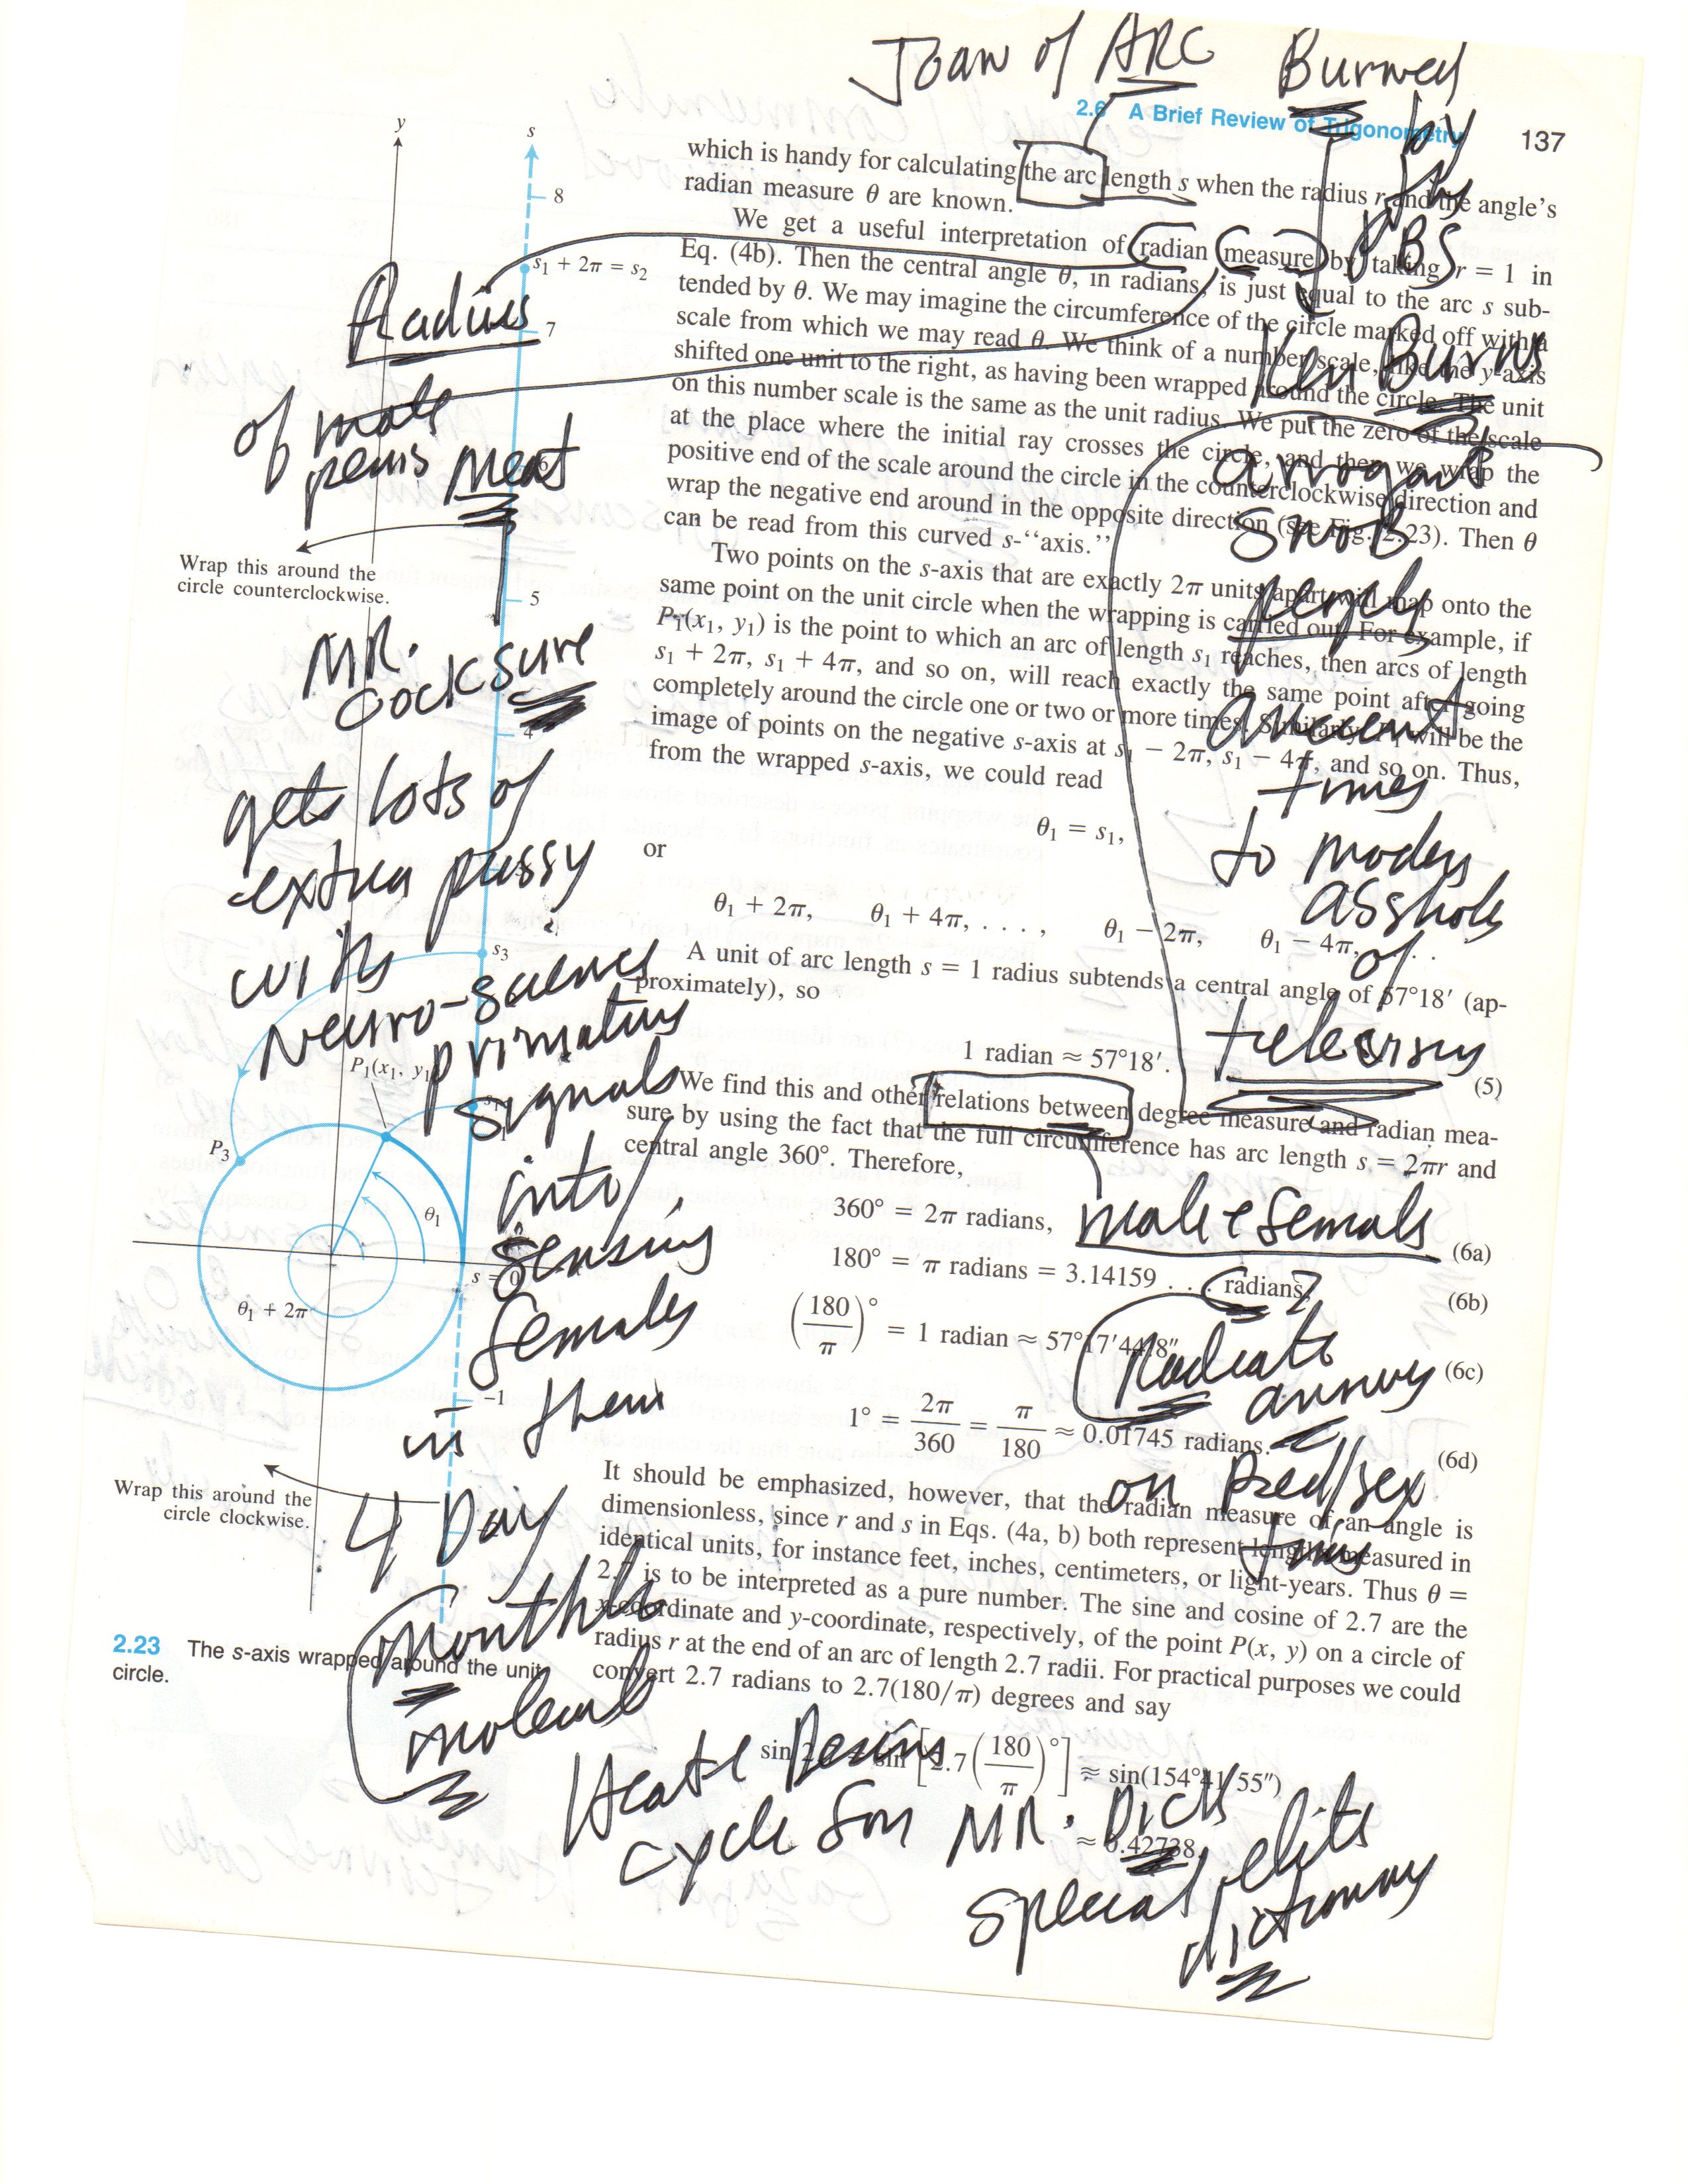 Joan of ARC Burned
2.6 A Brief Review of Trigonometry 137
by
PBS
Ken Burns
arrogant
snob
people
ancent
times
to modern
asshole
of
which is handy for calculating the arc length s when the radius r and the angle's
radian measure θ are known.
We get a useful interpretation of radian measure by taking r = 1 in
Eq. (4b). Then the central angle θ, in radians, is just equal to the arc s sub-
tended by θ. We may imagine the circumference of the circle marked off with a
scale from which we may read θ. We think of a number scale, like the y-axis
shifted one unit to the right, as having been wrapped around the circle. The unit
on this number scale is the same as the unit radius. We put the zero of the scale
at the place where the initial ray crosses the circle, and then we wrap the
positive end of the scale around the circle in the counterclockwise direction and
wrap the negative end around in the opposite direction (see Fig. 2.23). Then θ
can be read from this curved s-“axis.”
Two points on the s-axis that are exactly 2π units apart will map onto the
same point on the unit circle when the wrapping is carried out. For example, if
P₁(x₁, y₁) is the point to which an arc of length s₁ reaches, then arcs of length
s₁ + 2π, s₁ + 4π, and so on, will reach exactly the same point after going
completely around the circle one or two or more times. Similarly, P₁ will be the
image of points on the negative s-axis at s₁ − 2π, s₁ − 4π, and so on. Thus,
from the wrapped s-axis, we could read
θ₁ = s₁,
or
θ₁ + 2π, θ₁ + 4π, . . . , θ₁ − 2π, θ₁ − 4π, . .
A unit of arc length s = 1 radius subtends a central angle of 57°18′ (ap-
proximately), so
1 radian ≈ 57°18′. (5)
We find this and other relations between degree measure and radian mea-
sure by using the fact that the full circumference has arc length s = 2πr and
central angle 360°. Therefore,
360° = 2π radians, (6a)
male & female
180° = π radians = 3.14159 . . . radians, (6b)
(180/π)° = 1 radian ≈ 57°17′44.8″, (6c)
Radiate
1° = 2π/360 = π/180 ≈ 0.01745 radians. (6d)
on
sex
It should be emphasized, however, that the radian measure of an angle is
dimensionless, since r and s in Eqs. (4a, b) both represent lengths measured in
identical units, for instance feet, inches, centimeters, or light-years. Thus θ =
2.7 is to be interpreted as a pure number. The sine and cosine of 2.7 are the
x-coordinate and y-coordinate, respectively, of the point P(x, y) on a circle of
radius r at the end of an arc of length 2.7 radii. For practical purposes we could
convert 2.7 radians to 2.7(180/π) degrees and say
sin 2.7 = sin [2.7(180/π)°] ≈ sin(154°41′55″)
≈ 0.42738.
y
s
8
s₁ + 2π = s₂
Radius
7
of male
penis meat
Wrap this around the
circle counterclockwise.
5
MR.
Cocksure
4
gets lots of
extra pussy
with
s₃
Neuro-science
P₁(x₁, y₁)
signals
P₃
into
θ₁
sensing
s = 0
θ₁ + 2π
females
−1
in them
Wrap this around the
circle clockwise.
4 Day
monthle
2.23 The s-axis wrapped around the unit
circle.
cycle for MR. Dick
special elite